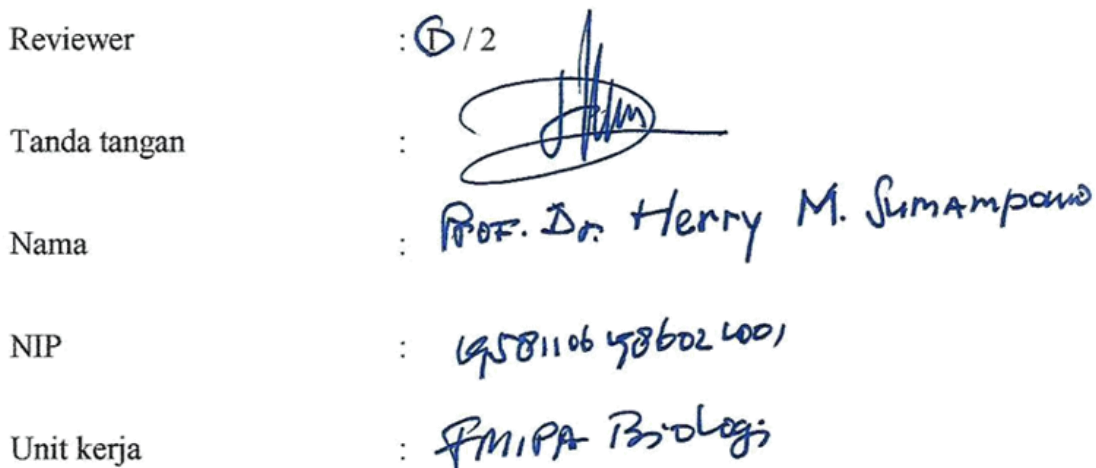 Reviewer : 1 / 2
Tanda tangan :
Nama : Prof. Dr. Herry M. Sumampouw
NIP : 19581106 198602 1001
Unit kerja : FMIPA Biologi